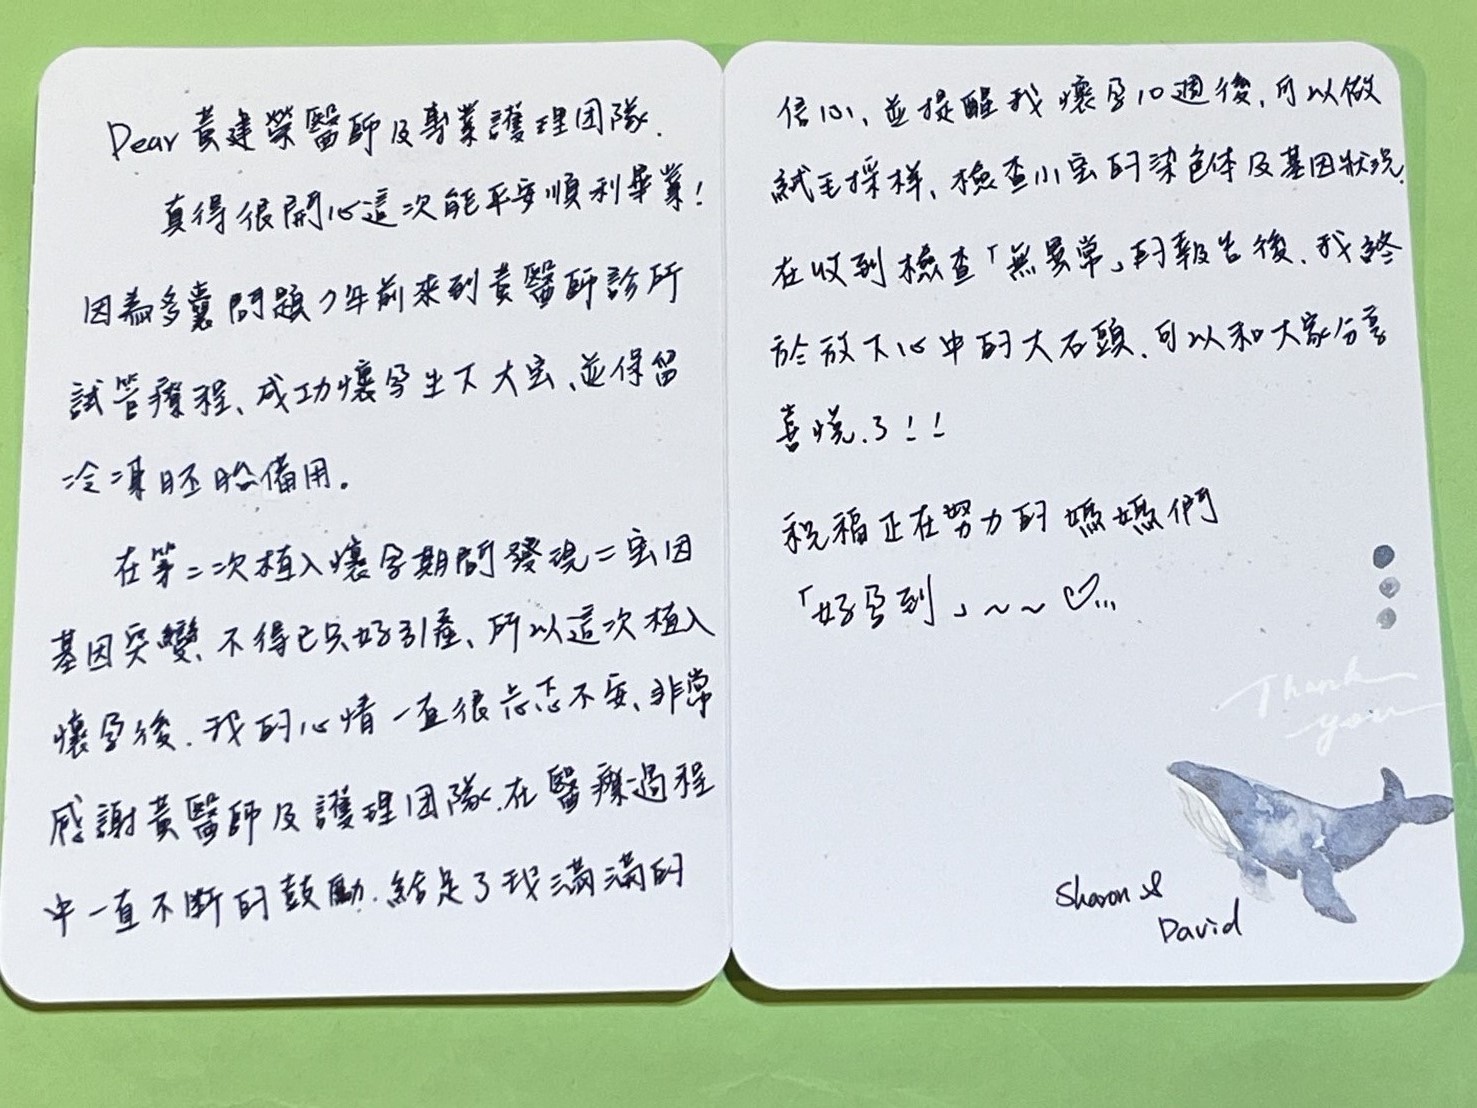 Dear 黃建榮醫師及專業護理团隊.
真得很開心這次能平安順利畢業!
因為多囊問題7年前來到黃醫師診所
試管療程、成功懷孕生下大宝、並保留
冷凍胚胎備用。
在第二次植入懷孕期間發現二宝因
基因突變、不得已只好引產、所以這次植入
懷孕後.我的心情一直很忐忑不安、非常
感謝黃醫師及護理团隊.在醫療過程
中一直不斷的鼓勵.給足了我滿滿的
信心、並提醒我懷孕10週後.可以做
絨毛採样、檢查小宝的染色体及基因狀況.
在收到檢查「無異常」的報告後.我終
於放下心中的大石頭.可以和大家分享
喜悅了!!
祝福正在努力的媽媽們
「好孕到」~~♡...
Thank
you
Sharon &
David